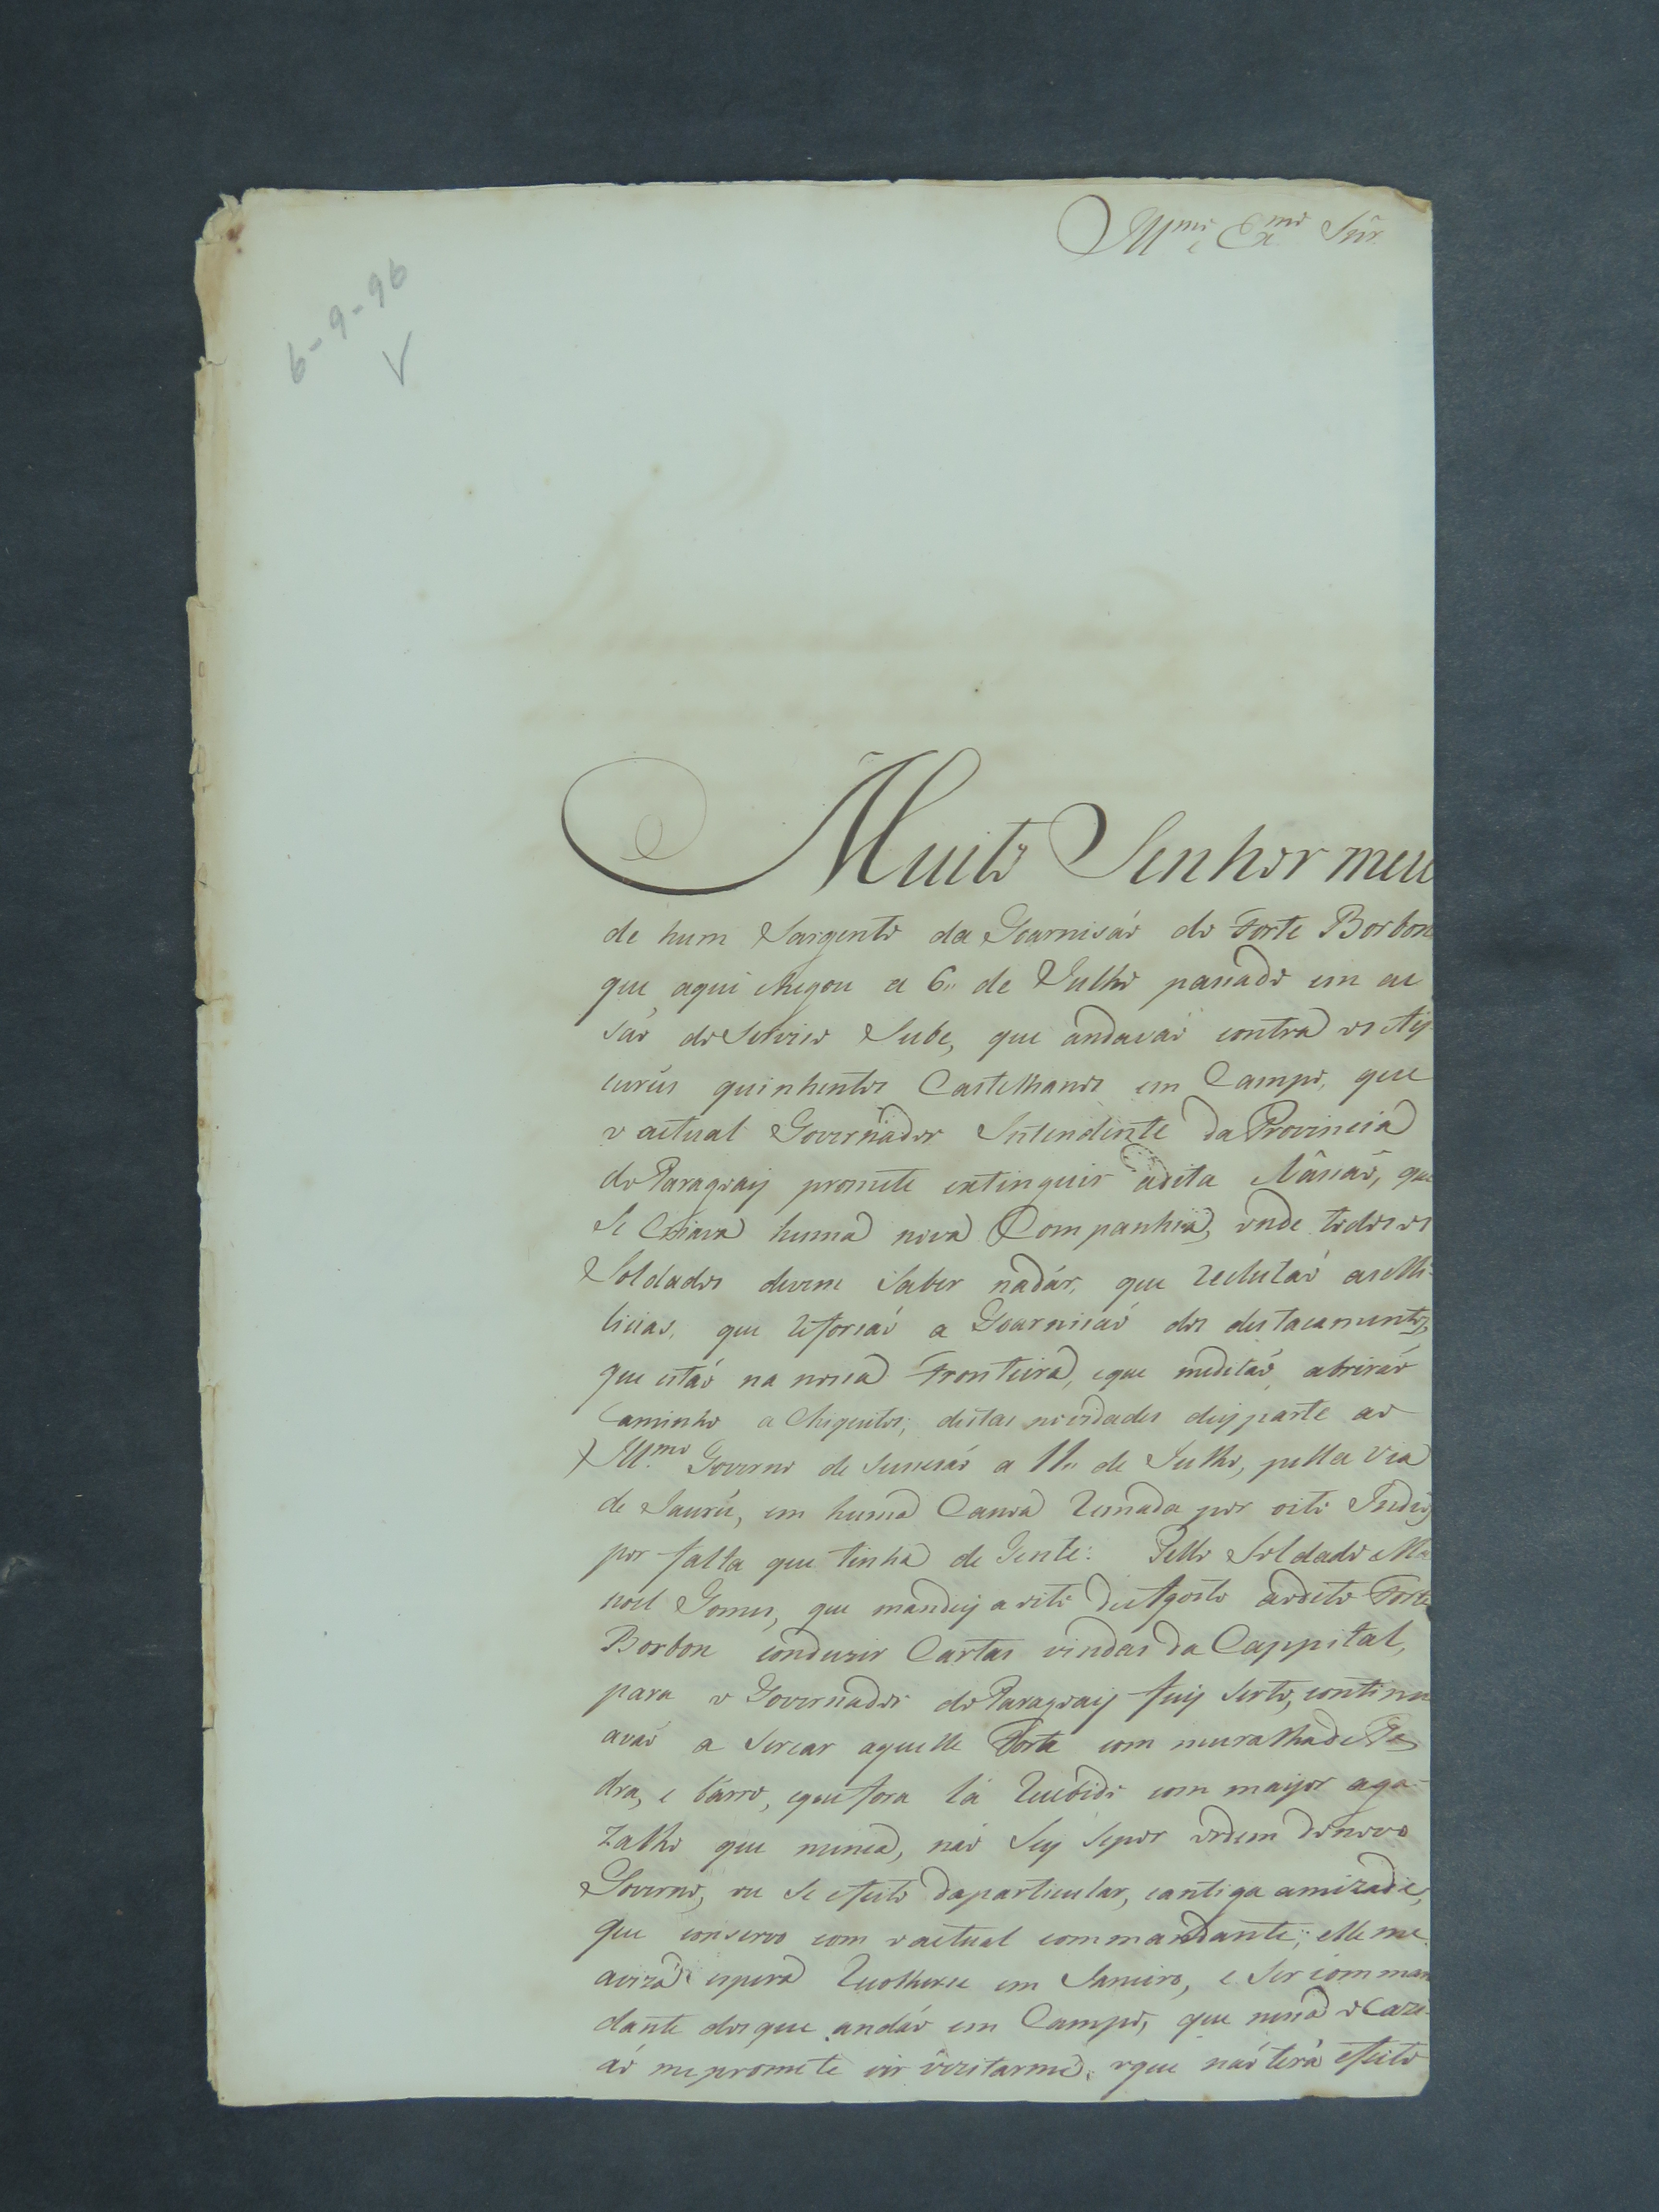 Ill.mo e Ex.mo Snr.
6-9-96
Muito Senhor meu
de hum Sargento da Goarnisáo do Forte Borbon
que aqui chegou a 6,, de Julho passado em ac
sáo do Servico Sube, que andaváo contra os Ay
curús quinhentos Castelhanos em Campo, que
o actual Governador Intendente da Provincia
do Paragoay promete extinguir adita Násiaõ, que
se Criava huma nova Companhia, onde todos os
Soldados devem Saber nadár, que reclutáo as Mi-
licias, que reforsáo a Goarnisáo dos destacamentos,
que estáo na nossa Fronteira, eque meditáo abriráo
Caminho a Chiquitos; destas novidades dey parte ao
Ill.mo Governo de Sucesáo a 11,, de Julho, pella via
de Jaurú, em huma Canoa remada por oito Indios
por falta que tinha de Gente: Pello Soldado Ma
noel Gomes, que mandey a oito de Agosto aodito Forte
Borbon conduzir Cartas vindas da Cappital,
para o Governador do Paragoay fuy Serto, continu
aváo a Sercar aquelle Forte com muralha de Pe
dra, e bárro, eque fora lá recebido com mayor aga-
zalho que nunca, náo Sey Sepor ordem do novo
Governo, ou Se efeito daparticular, eantiga amizade,
que conservo com o actual commandante; elle me
aviza espera recolherse em Janeiro, e Ser comman
dante dos que andáo em Campo, que nessa ocazi-
áo mepromete vir vezitarme, oque náo terá efeito